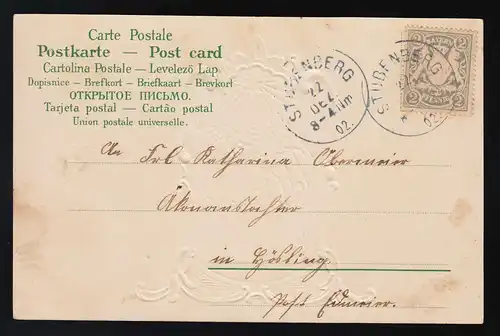 Carte Postale
Postkarte — Post card
Cartolina Postale — Levelező Lap
Dopisnice — Brefkort — Briefkaart — Brevkort
ОТКРЫТОЕ ПИСЬМО.
Tarjeta postal — Cartão postal
Union postale universelle.
STUBENBERG
22
DEZ.
8-
Nm
02.
STUBENBERG
02.
2
2
2
2
An Frl Katharina Obermeier
Ökonomstochter
in Hösling
Post